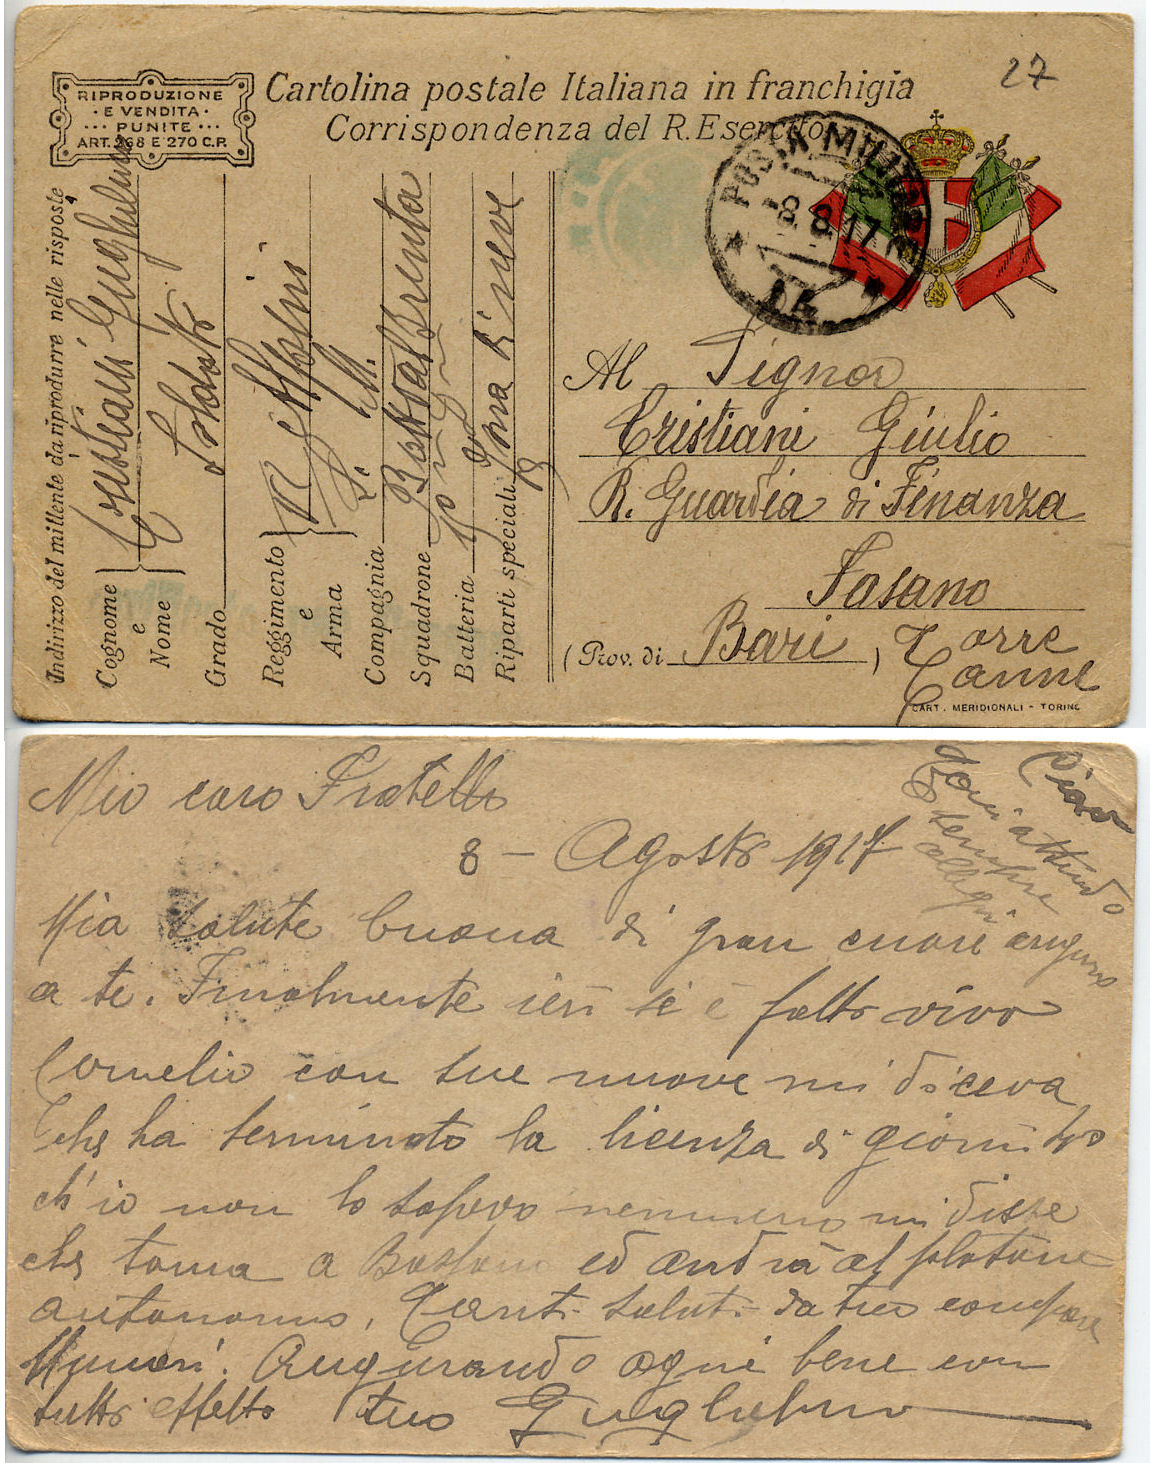 27
RIPRODUZIONE
· E VENDITA ·
··· PUNITE ···
ART. 268 E 270 C.P.
Cartolina postale Italiana in franchigia
Corrispondenza del R. Esercito
POSTA MILITARE
8.8.17
Indirizzo del mittente da riprodurre nelle risposte
Cognome e Nome Cristiani Guglielmo
Grado Soldato
Reggimento e Arma R Alpini
Compagnia
Squadrone Batt Val Brenta
Batteria
Riparti speciali
Al Signor
Cristiani Giulio
R. Guardia di Finanza
Fasano
(Prov. di Bari) Torre
Canne
CART. MERIDIONALI - TORINO
Mio caro Fratello
8 - Agosto 1917
Ciao
sempre
allegri
Mia salute buona di gran cuore auguro
a te. Finalmente ieri si è fatto vivo
Cornelio con sue nuove mi diceva
che ha terminato la licenza di giorni
ch'io non lo sapevo nemmeno mi disse
che torna a ed andrà al plotone
autonomo. Tanti saluti da tuo compare
Munari. Augurando ogni bene con
tutto affetto tuo Guglielmo